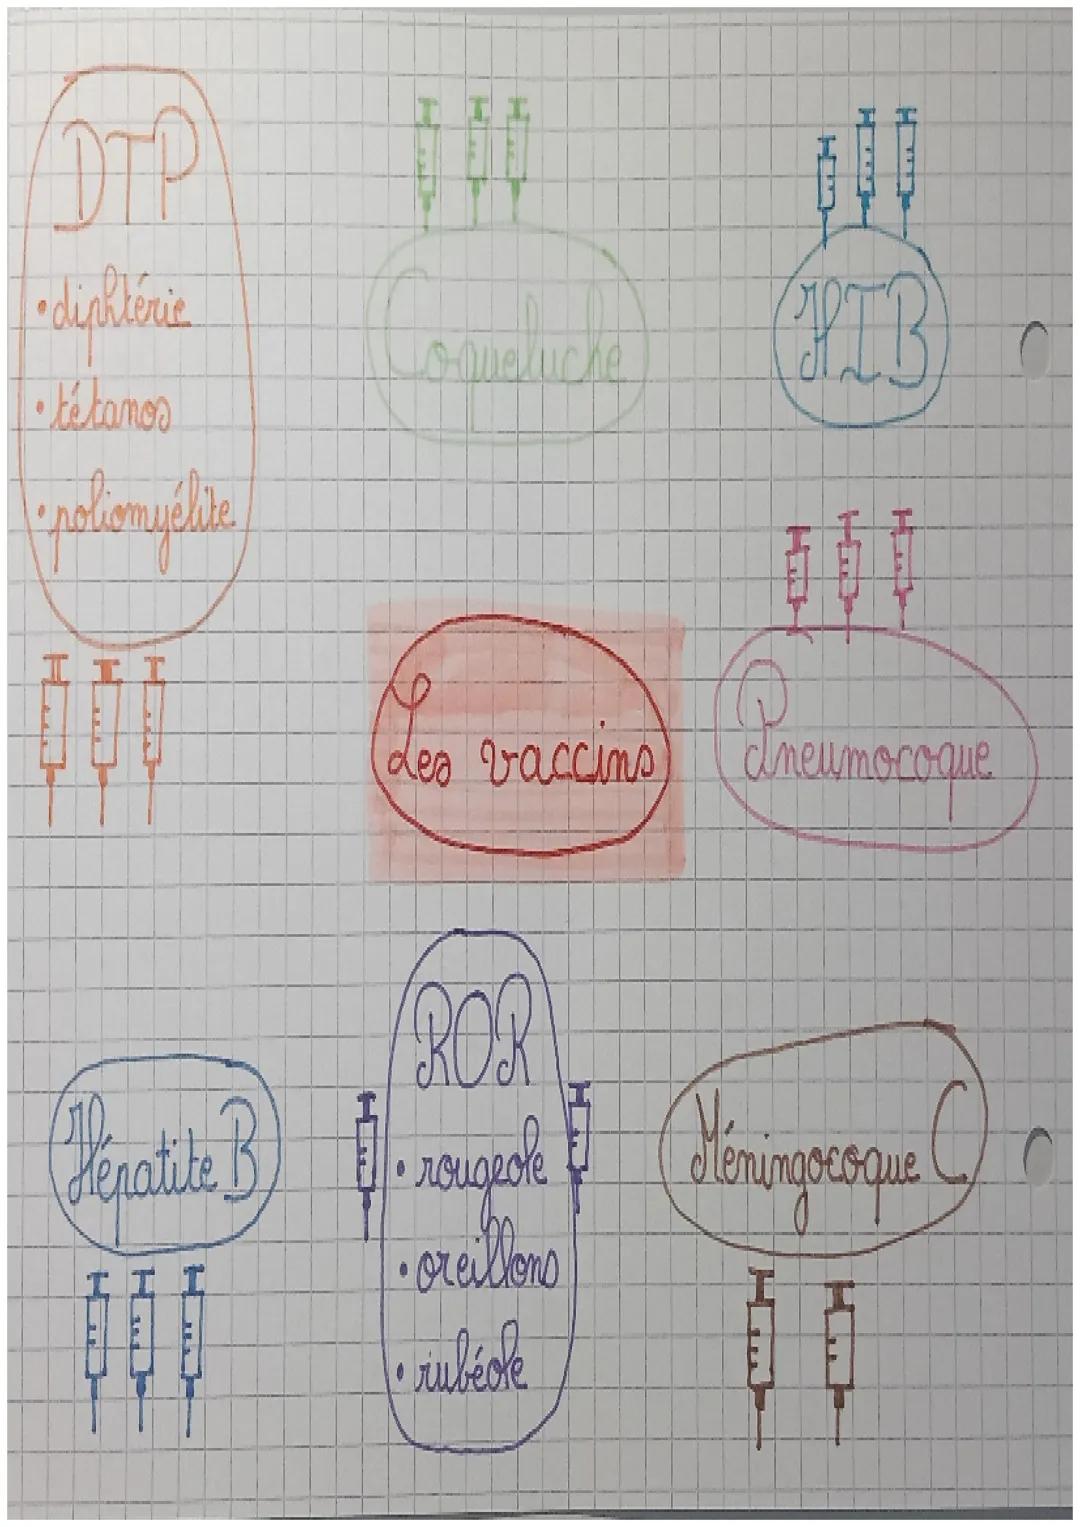 DTP
• diphtérie
• tétanos
• poliomyélite
Coqueluche
HIB
Les vaccins
Pneumocoque
Hépatite B
ROR
• rougeole
• oreillons
• rubéole
Méningocoque C